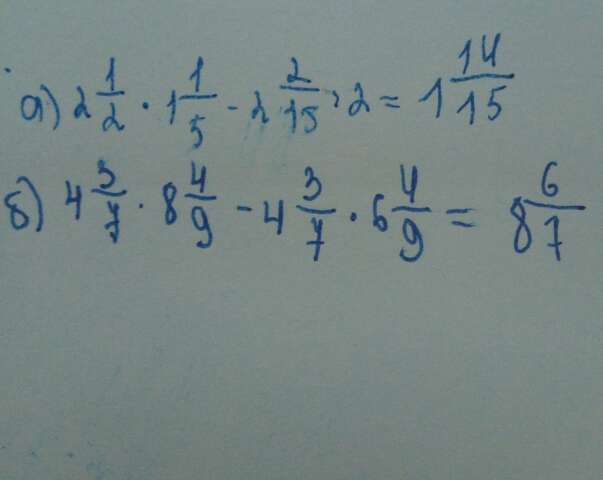 а) 2 1/2 · 1 1/5 - 2 2/15 : 2 = 1 14/15
б) 4 3/7 · 8 4/9 - 4 3/7 · 6 4/9 = 8 6/7